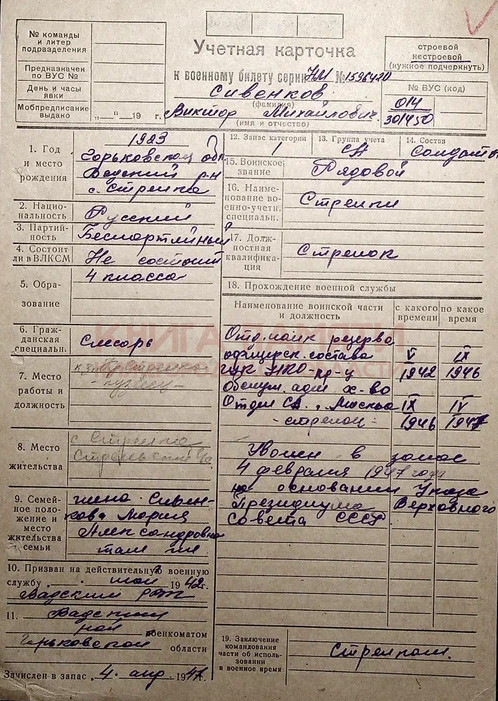 № команды
и литер
подразделения
Предназначен
по ВУС №
День и часы
явки
Мобпредписание
выдано „ “ 19 г.
Учетная карточка
к военному билету серии НМ № 1596420
Сивенков
(фамилия)
Виктор Михайлович
(имя и отчество)
строевой
нестроевой
(нужное подчеркнуть)
№ ВУС (код)
014
301450
1. Год
и место
рождения
1923
Горьковской обл
Вадский р-н
с. Стрелка
2. Нацио-
нальность
Русский
3. Партий-
ность
Беспартийный
4. Состоит
ли в ВЛКСМ
Не состоит
5. Обра-
зование
4 класса
6. Граж-
данская
специальн.
Слесарь
7. Место
работы и
должность
8. Место
жительства
с Стрелка
9. Семей-
ное поло-
жение и
место
жительства
семьи
жена Сивен-
кова Мария
Александровна
там же
10. Призван на действительную военную
службу май 1942 г.
Вадским РВК
11. Вадским
военкоматом
Горьковской области
Зачислен в запас 4 апр 1947 г.
12. Запас категории
13. Группа учета
СА
14. Состав
Солдаты
15. Воинское
звание
Рядовой
16. Наимено-
вание во-
енно-учетн.
специальн.
Стрелки
17. Долж-
ностная
квалифика-
ция
Стрелок
18. Прохождение военной службы
Наименование воинской части
и должность
с какого
времени
по какое
время
Отд. полк резерва
офицерск. состава V IX
ГУК НКО 1942 1946
Отдел Св. Москва IX IV
стрелок 1946 1947
Уволен в запас
4 февраля 1947 года
на основании Указа
Президиума Верховного
Совета СССР
19. Заключение
командования
части об исполь-
зовании
в военное время
Стрелком.
КНИГА ПАМЯТИ